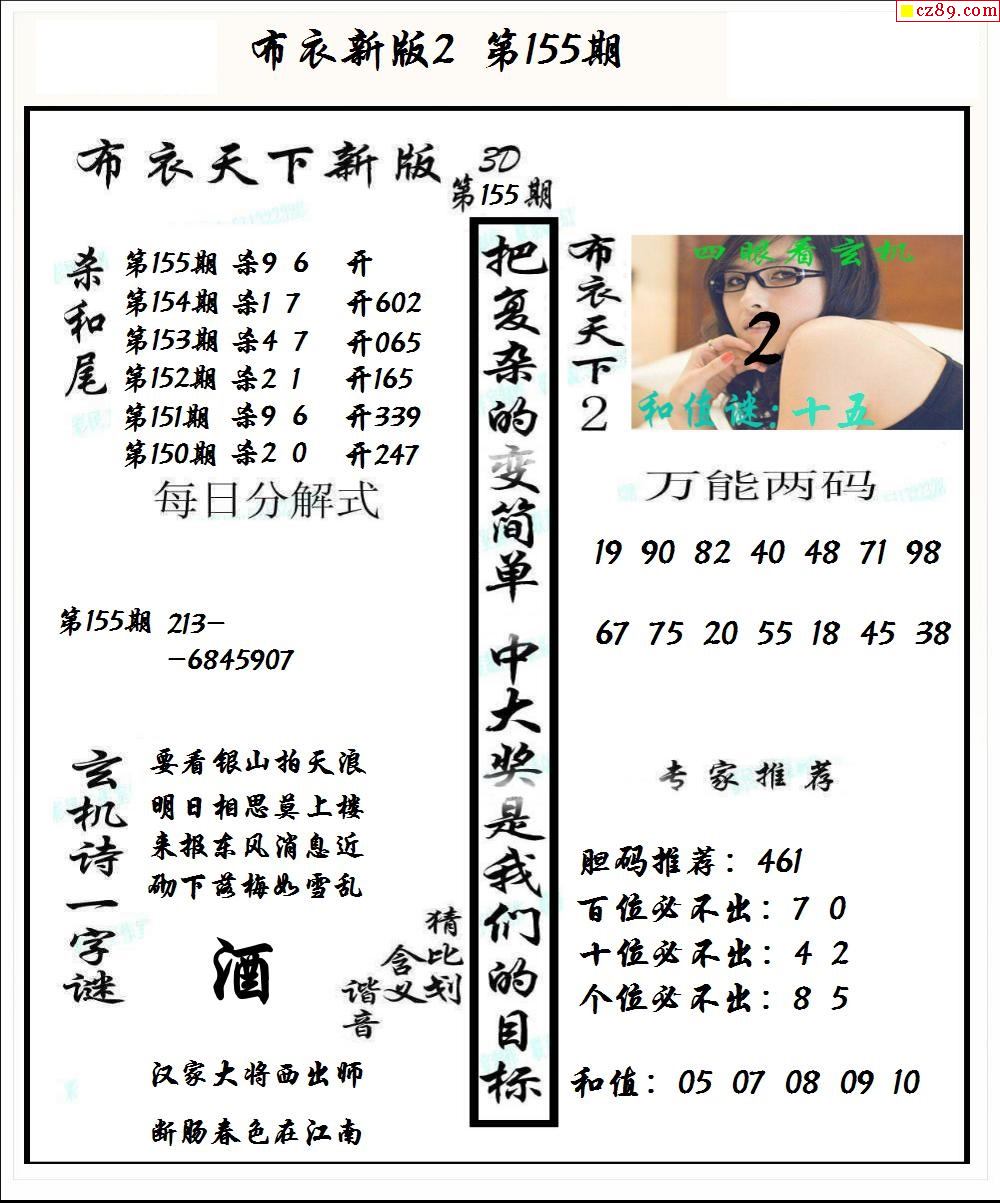 cz89.com
布衣新版2 第155期
布衣天下新版 3D
第155期
杀和尾
第155期 杀9 6 开
第154期 杀1 7 开602
第153期 杀4 7 开065
第152期 杀2 1 开165
第151期 杀9 6 开339
第150期 杀2 0 开247
每日分解式
第155期 213-
-6845907
玄机诗一字谜
要看银山拍天浪
明日相思莫上楼
来报东风消息近
砌下落梅如雪乱
酒
猜比划
含义
谐音
汉家大将西出师
断肠春色在江南
把复杂的变简单 中大奖是我们的目标
布衣天下2
四眼看玄机
2
和值谜:十五
万能两码
19 90 82 40 48 71 98
67 75 20 55 18 45 38
专家推荐
胆码推荐：461
百位必不出：7 0
十位必不出：4 2
个位必不出：8 5
和值：05 07 08 09 10